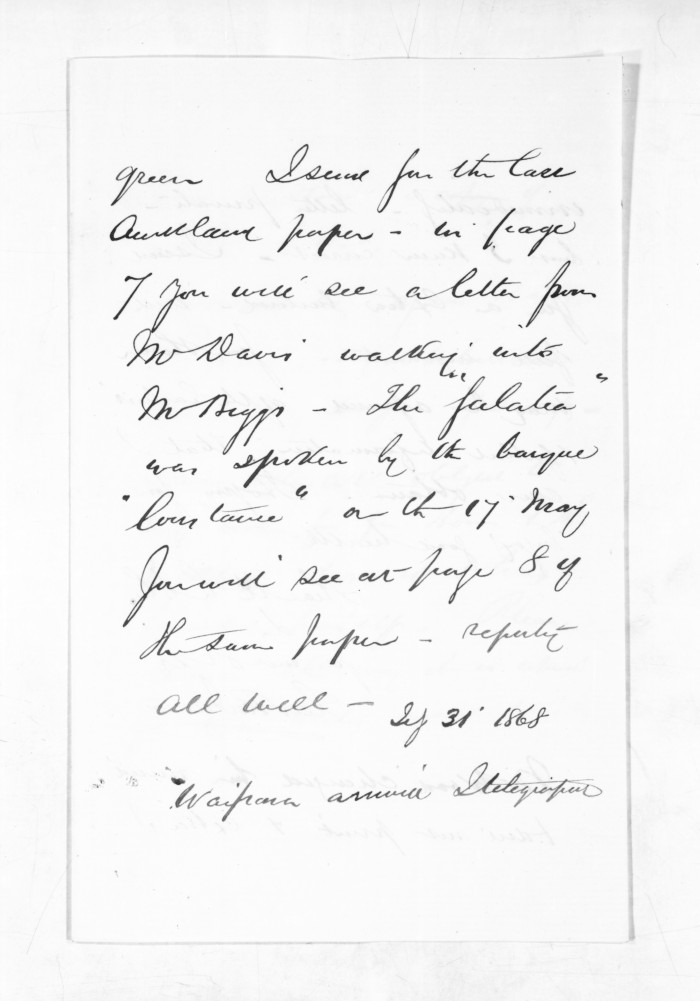 green I send you the last
Auckland paper - in page
7 you will see a letter from
Mr Davis walking into
Mr Biggs - The "Galatea"
was spoken by the barque
"Constance" on the 17 May
You will see at page 8 of
the same paper - reporting
all well -
31 1868
Waipara arrived I telegraphed